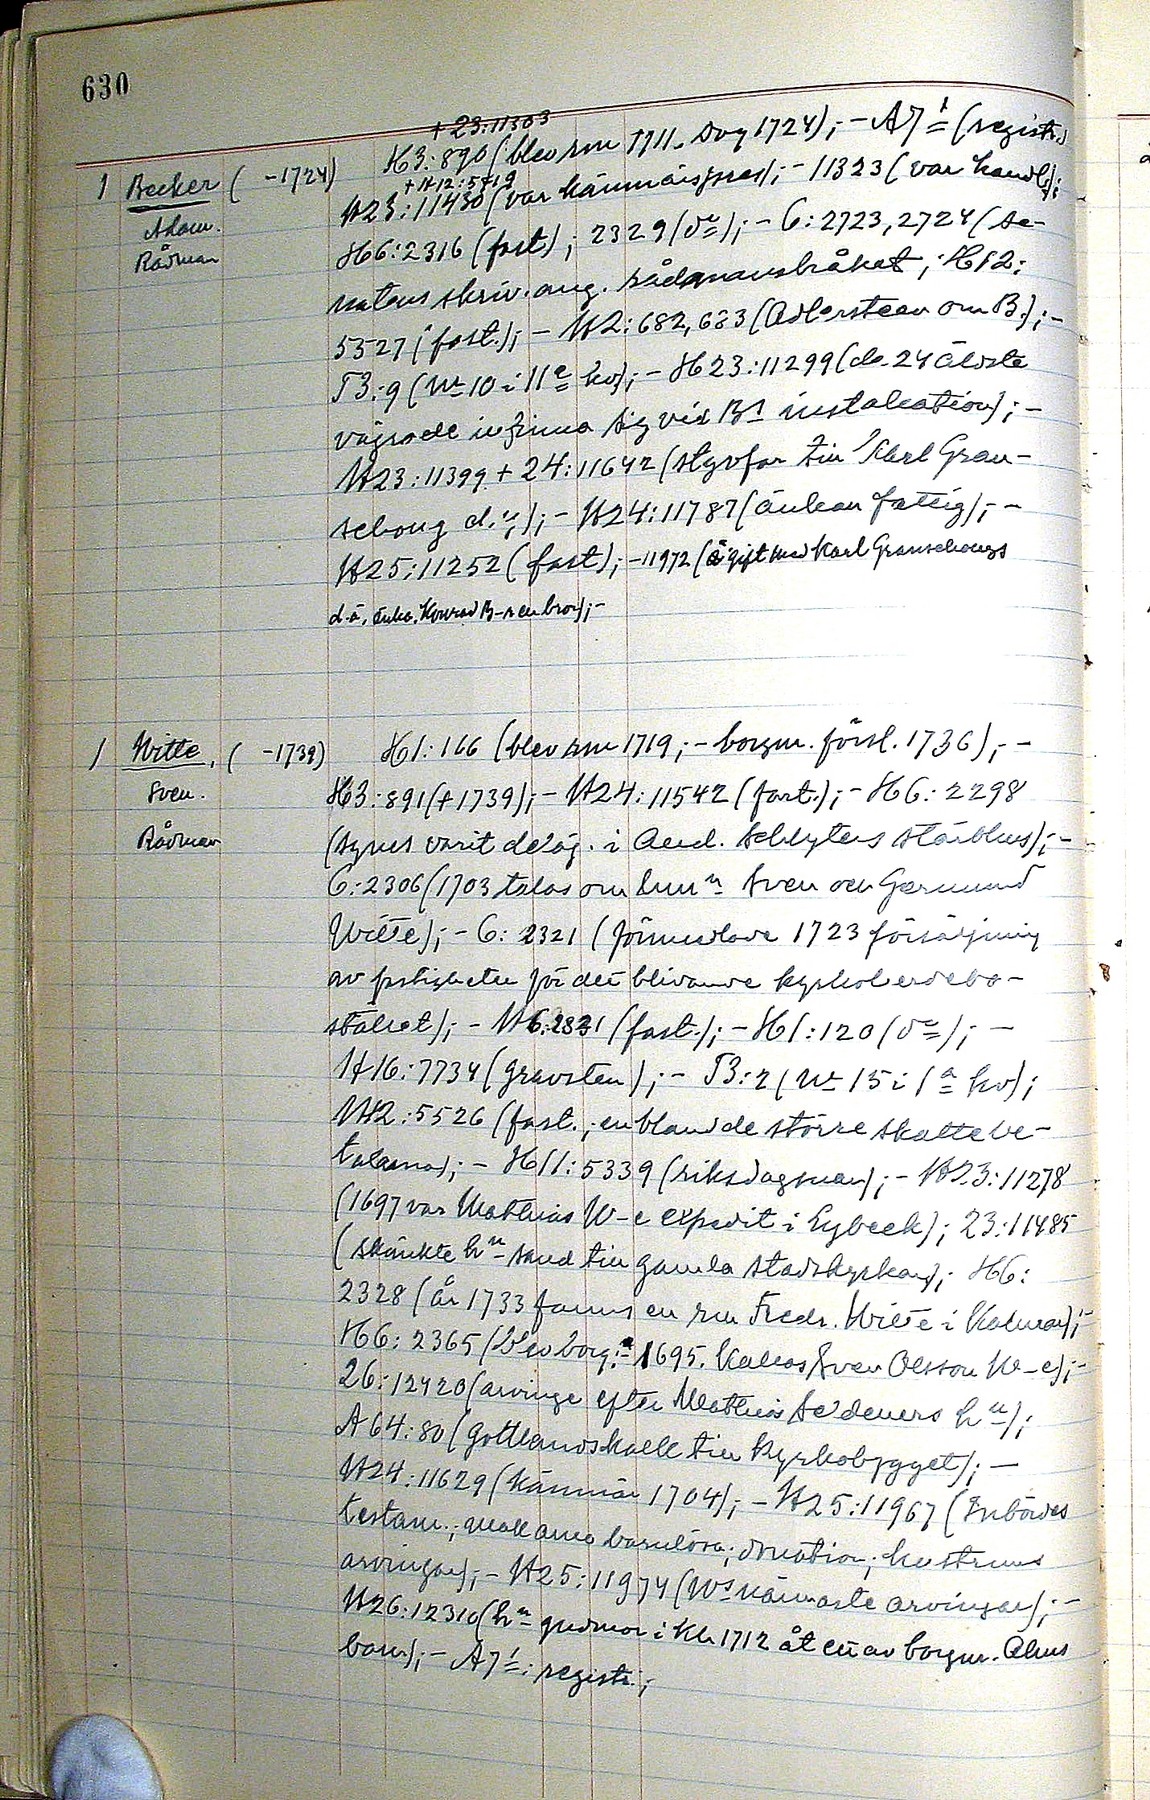 630
+ 23:11303
1 Becker ( -1724) H3:890 (blev rm 1711. Dog 1724); - A7 1/= (registr.)
+ H12:5419
Adam. H23:11430 (var kämnärspres); - 11323 (var handl.);
Rådman H6:2316 (fast); 2329 (do); - 6:2723, 2724 (Se-
natens skriv. ang. rådmansbråket; H12:
5527 (fast.); - H2:682, 683 (Adlersteen om B.); -
T3:9 (No 10 i IIa kv); - H23:11299 (de 24 äldste
vägrade infinna sig vid Bs installation); -
H23:11399 + 24:11642 (styvfar till Karl Gran-
schoug d.y.); - H24:11787 (änkan fattig); -
H25:11252 (fast); - 11972 (gift med Karl Granschougs
d.ä. änka. Konrad B-r en bror); -
1 Witte. ( -1739) H1:166 (blev rm 1719; - borgm. försl. 1736); -
Sven. H3:891 (+1739); - H24:11542 (fast.); - H6:2298
Rådman (synes varit deläg. i And. Schlyters stärbhus); -
6:2306 (1703 talas om hrrn Sven och Germund
Witte); - 6:2321 (1723 försäljning
av fastigheten för det blivande kyrkoherdebo-
stället); - H6:2831 (fast.); - H1:120 (do); -
H16:7734 (gravsten); - T3:2 (No 15 i 1a kv);
H12:5526 (fast.; en bland de större skattebe-
talarna); - H11:5339 (riksdagsman); - H23:11278
(1697 var Mathias W-e expedit i Lybeck); 23:11485
(skänkte hn sand till gamla stadskyrkan); H6:
2328 (år 1733 fanns en rm Fredr. Witte i Kalmar); -
H6:2365 (blev borg. 1695. Kallas Sven Olsson W-e); -
26:12420 (arvinge efter Mathias hn);
A64:80 (Gottlandskalk till kyrkobygget); -
H24:11629 (kämnär 1704); - H25:11967 (Inbördes
testam.; makarna barnlösa; donation; hustruns
arvingar); - H25:11974 (Ws närmaste arvingar); -
H26:12310 (hn gudmor i Klr 1712 åt en av borgm.
barn); - A7 1/=: registr.;